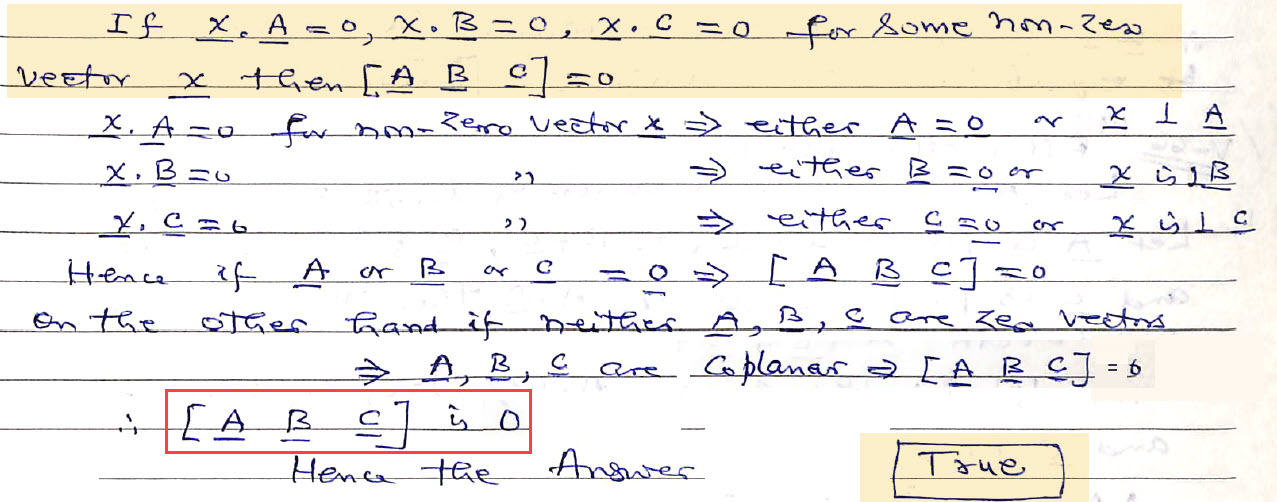 If x. A = 0, x. B = 0, x. C = 0 for some non-zero
vector x then [A B C] = 0
x. A = 0 for non-zero vector x ⇒ either A = 0 or x ⊥ A
x. B = 0 ,, ⇒ either B = 0 or x is ⊥ B
x. C = 0 ,, ⇒ either C = 0 or x is ⊥ C
Hence if A or B or C = 0 ⇒ [A B C] = 0
On the other hand if neither A, B, C are zero vectors
⇒ A, B, C are Coplanar ⇒ [A B C] = 0
∴ [A B C] is 0
Hence the Answer True